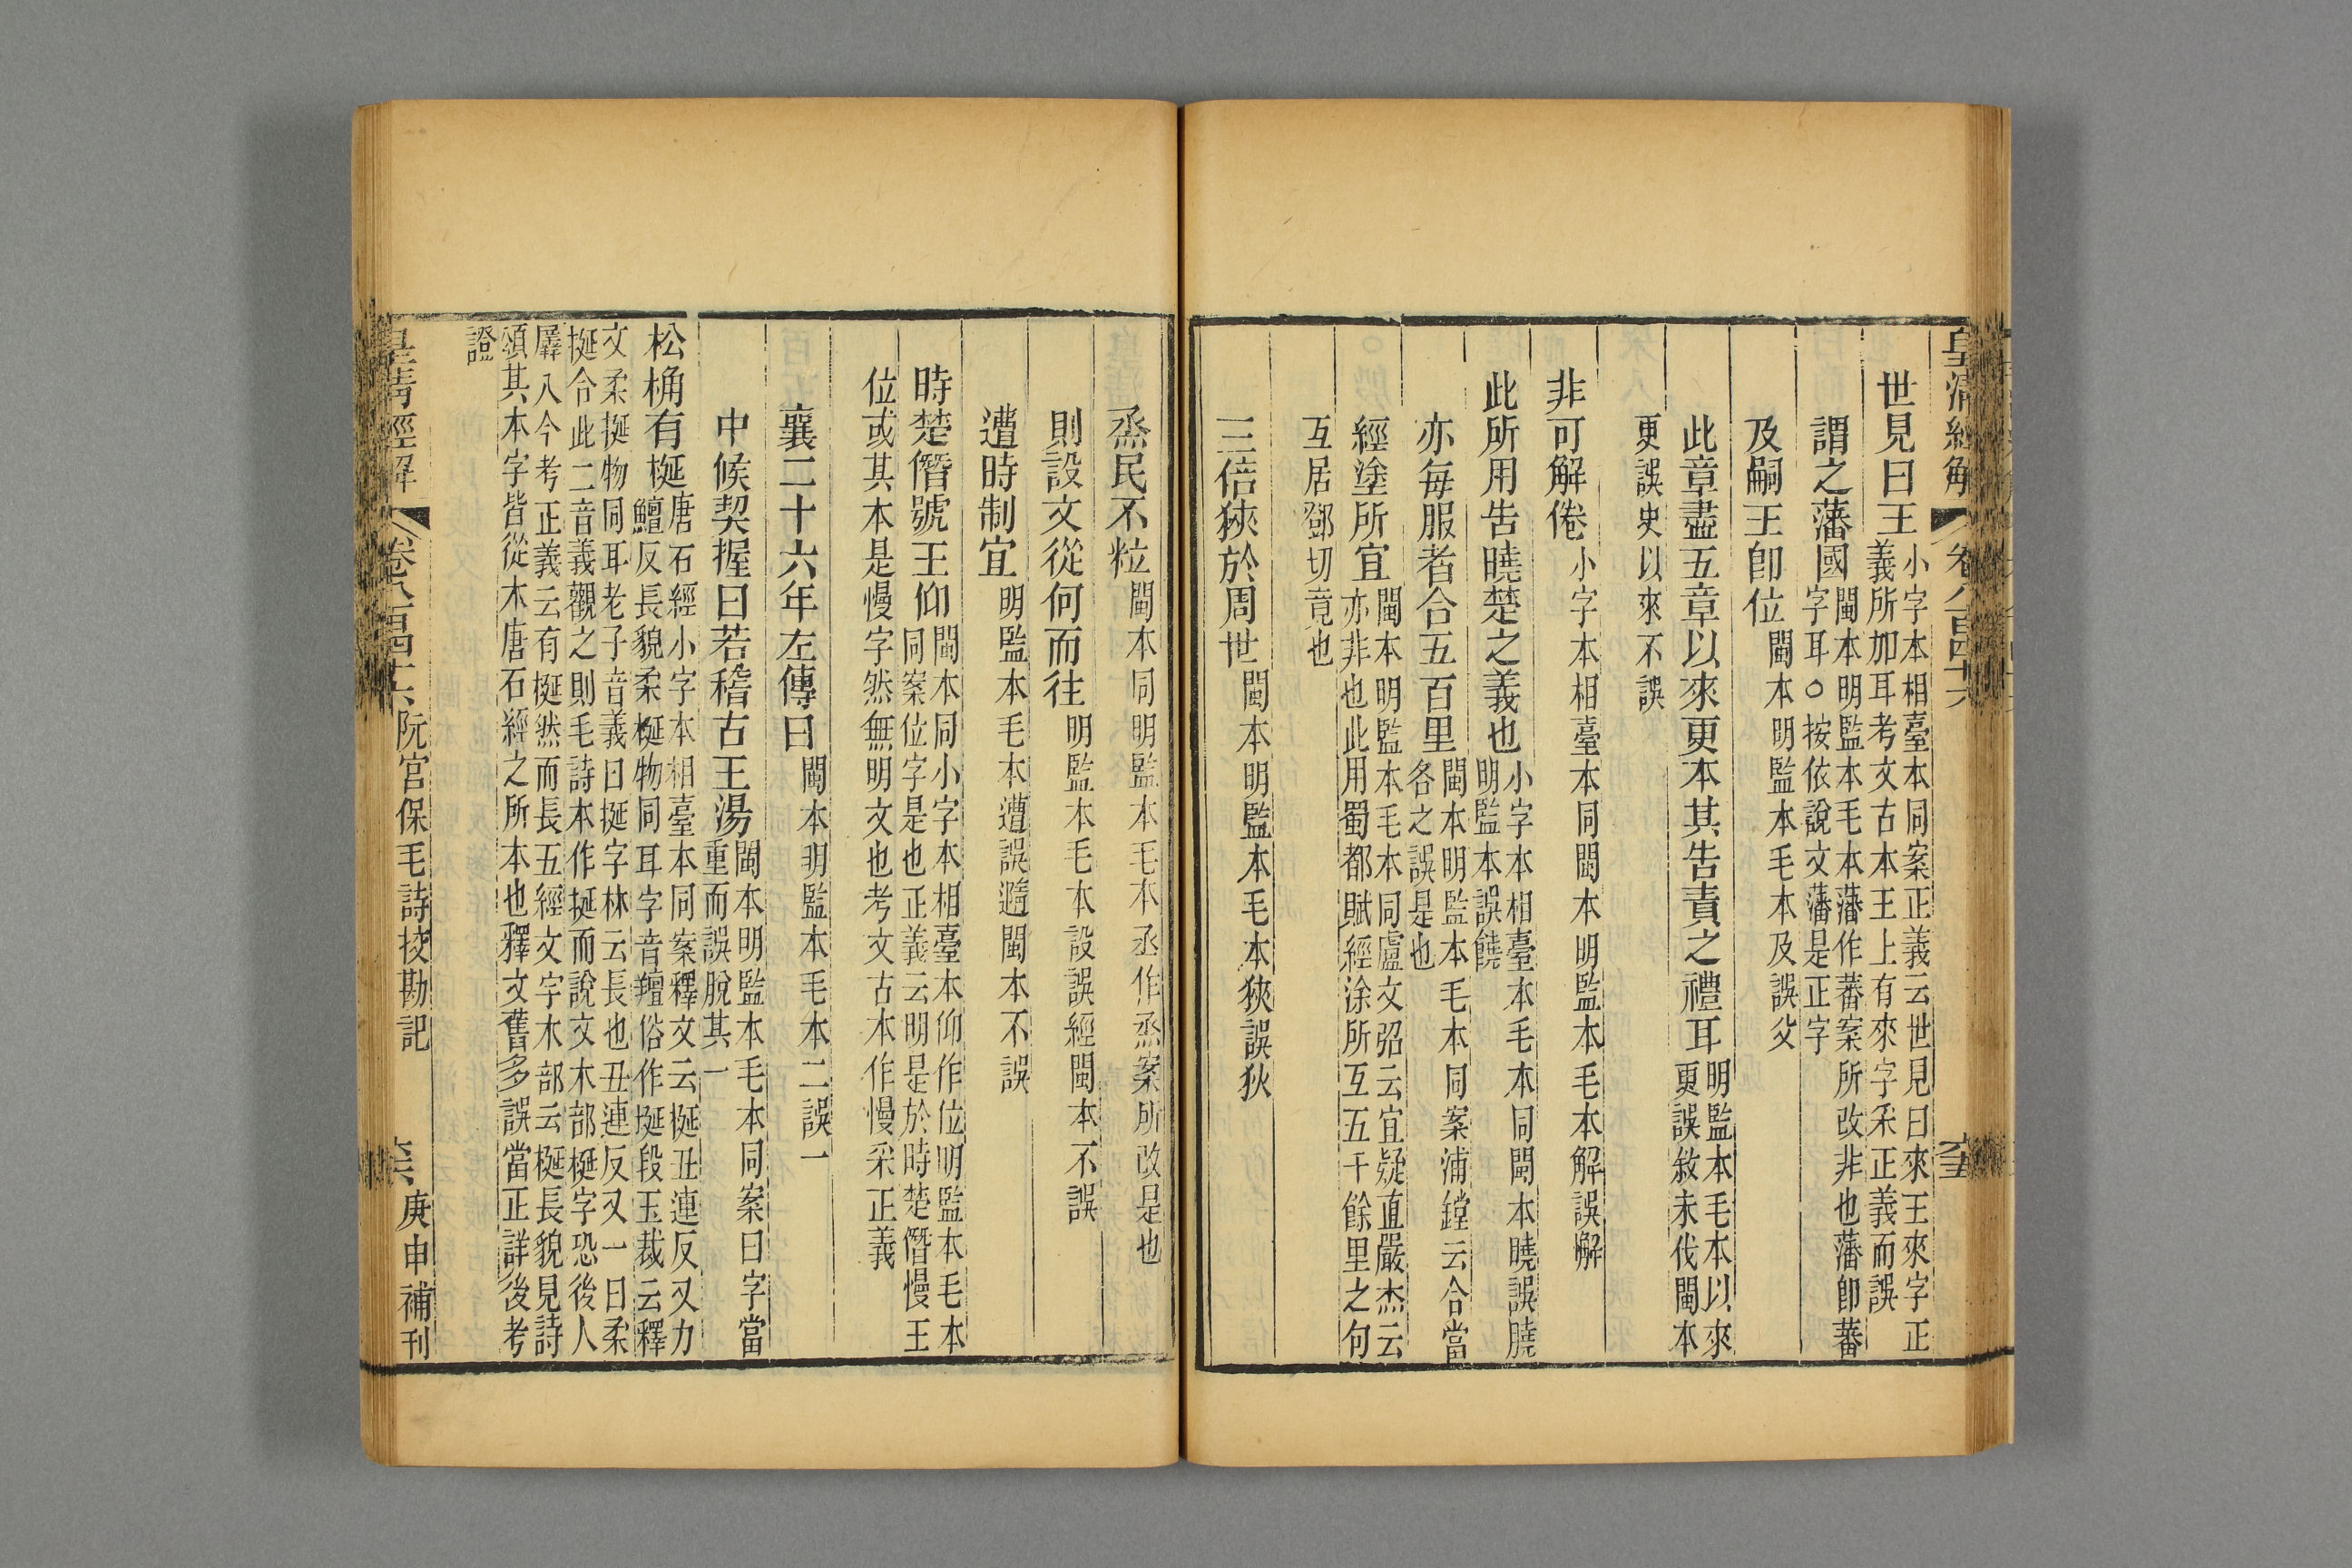 皇清經解 卷八百四十六 六十五
世見曰王小字本相臺本同案正義云世見曰來王來字正
義所加耳考文古本王上有來字采正義而誤
謂之藩國閩本明監本毛本藩作蕃案所改非也藩卽蕃
字耳○按依說文藩是正字
及嗣王卽位閩本明監本毛本及誤父
此章盡五章以來更本其告責之禮耳明監本毛本以來
更誤敘未伐閩本
更誤史以來不誤
非可解倦小字本相臺本同閩本明監本毛本解誤懈
此所用告曉楚之義也小字本相臺本毛本同閩本曉誤膮
明監本誤饒
亦每服者合五百里閩本明監本毛本同案浦鏜云合當
各之誤是也
經塗所宜閩本明監本毛本同盧文弨云宜疑直嚴杰云
亦非也此用蜀都賦經涂所亙五千餘里之句
亙居鄧切竟也
三倍狹於周世閩本明監本毛本狹誤狄
烝民不粒閩本同明監本毛本丞作烝案所改是也
則設文從何而往明監本毛本設誤經閩本不誤
遭時制宜明監本毛本遭誤遊閩本不誤
時楚僭號王仰閩本同小字本相臺本仰作位明監本毛本
同案位字是也正義云明是於時楚僭慢王
位或其本是慢字然無明文也考文古本作慢采正義
襄二十六年左傳曰閩本明監本毛本二誤一
中候契握曰若稽古王湯閩本明監本毛本同案曰字當
重而誤脫其一
松桷有梴唐石經小字本相臺本同案釋文云梴丑連反又力
鱣反長貌柔梴物同耳字音羶俗作挻段玉裁云釋
文柔挻物同耳老子音義曰挻字林云長也丑連反又一曰柔
挻合此二音義觀之則毛詩本作挻而說文木部梴字恐後人
羼入今考正義云有梴然而長五經文字木部云梴長貌見詩
頌其本字皆從木唐石經之所本也釋文舊多誤當正詳後考
證
皇清經解 卷八百四十六 阮宮保毛詩挍勘記 六十六 庚申補刊